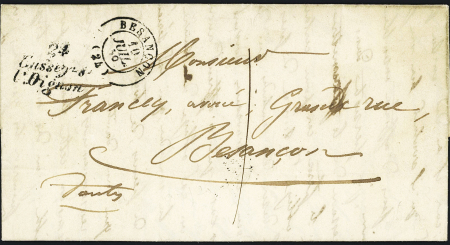 24
Cusse-s-
l'Ognon
BESANÇON
10
JUIL.
(24)
Monsieur
Francey, avoué, Grande rue,
Besançon
Doubs